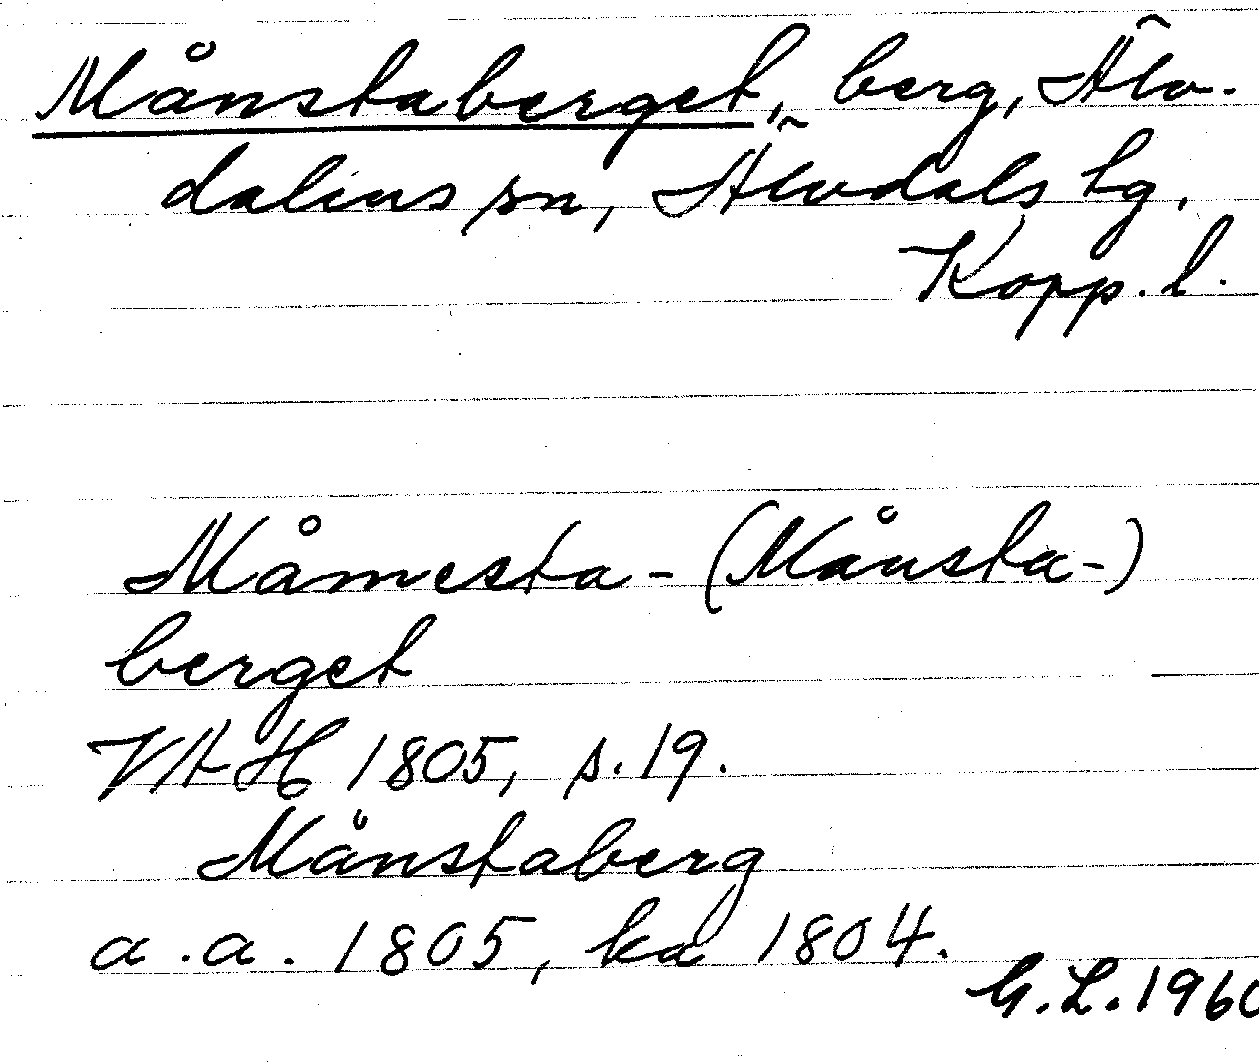 Månstaberget, berg, Älv-
dalens sn, Älvdals tg,
Kopp. l.
Måmesta- (Månsta-)
berget
VAH 1805, s. 19.
Månstaberg
a.a. 1805, ka 1804.
G.L. 1960